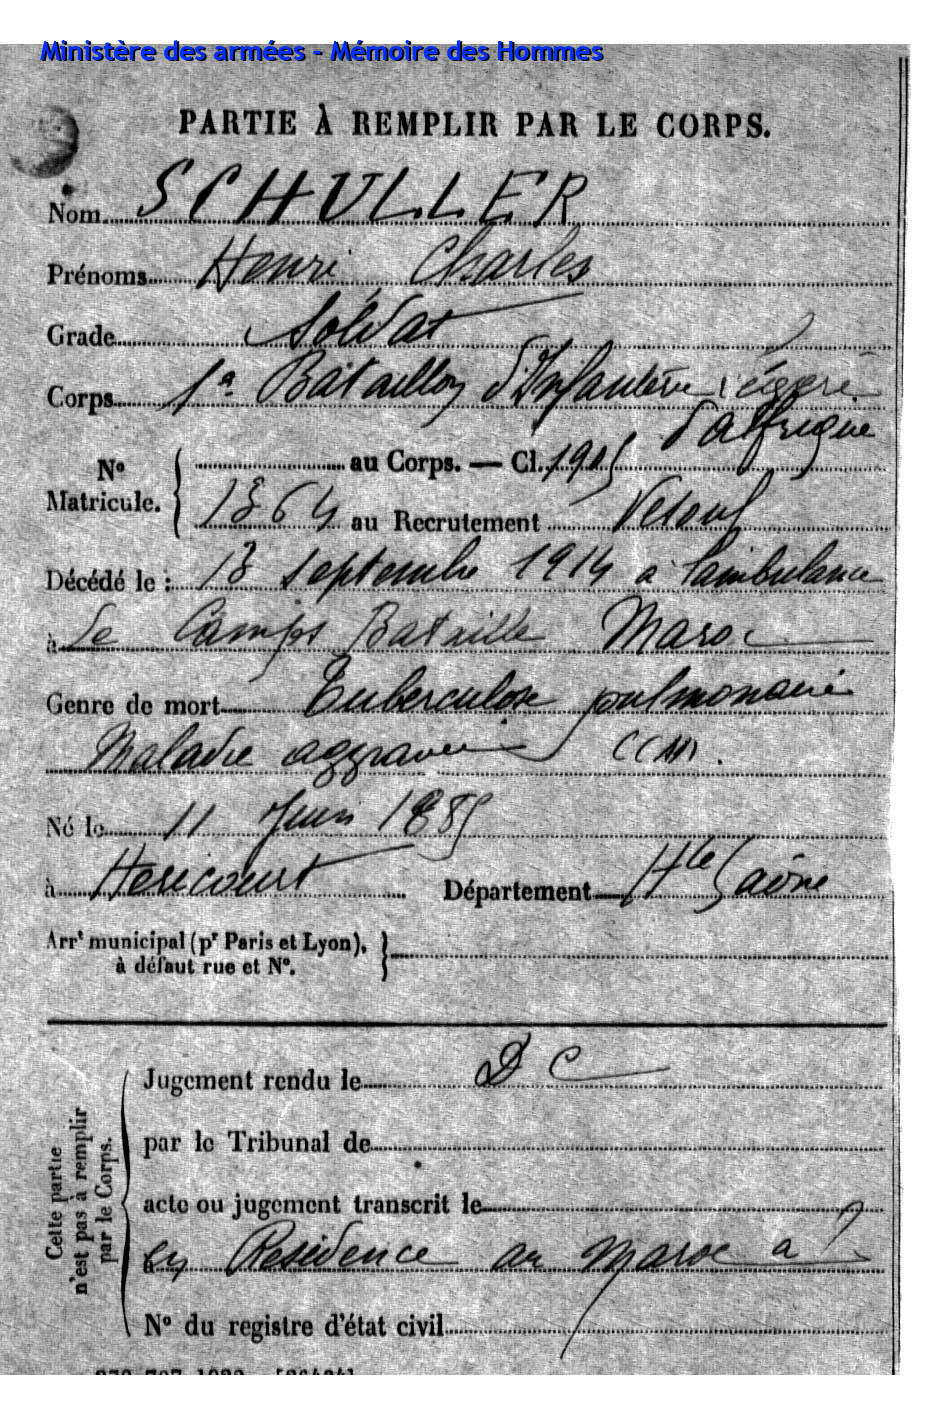 Ministère des armées - Mémoire des Hommes
PARTIE À REMPLIR PAR LE CORPS.
Nom SCHULLER
Prénoms Henri Charles
Grade Soldat
Corps 1er Bataillon d'Infanterie légère
d'afrique
N° Matricule. au Corps. — Cl. 1905
1864 au Recrutement Vesoul
Décédé le : 18 septembre 1914 a l'ambulance
à Le Camps Bataille Maroc
Genre de mort Tuberculose pulmonaire
Maladie aggravée
Né le 11 Juin 1885
à Hericourt Département Hte Saône
Arrt municipal (pr Paris et Lyon),
à défaut rue et N°.
Cette partie n'est pas à remplir par le Corps.
Jugement rendu le D C
par le Tribunal de
acte ou jugement transcrit le
à en Residence au Maroc a ?
N° du registre d'état civil